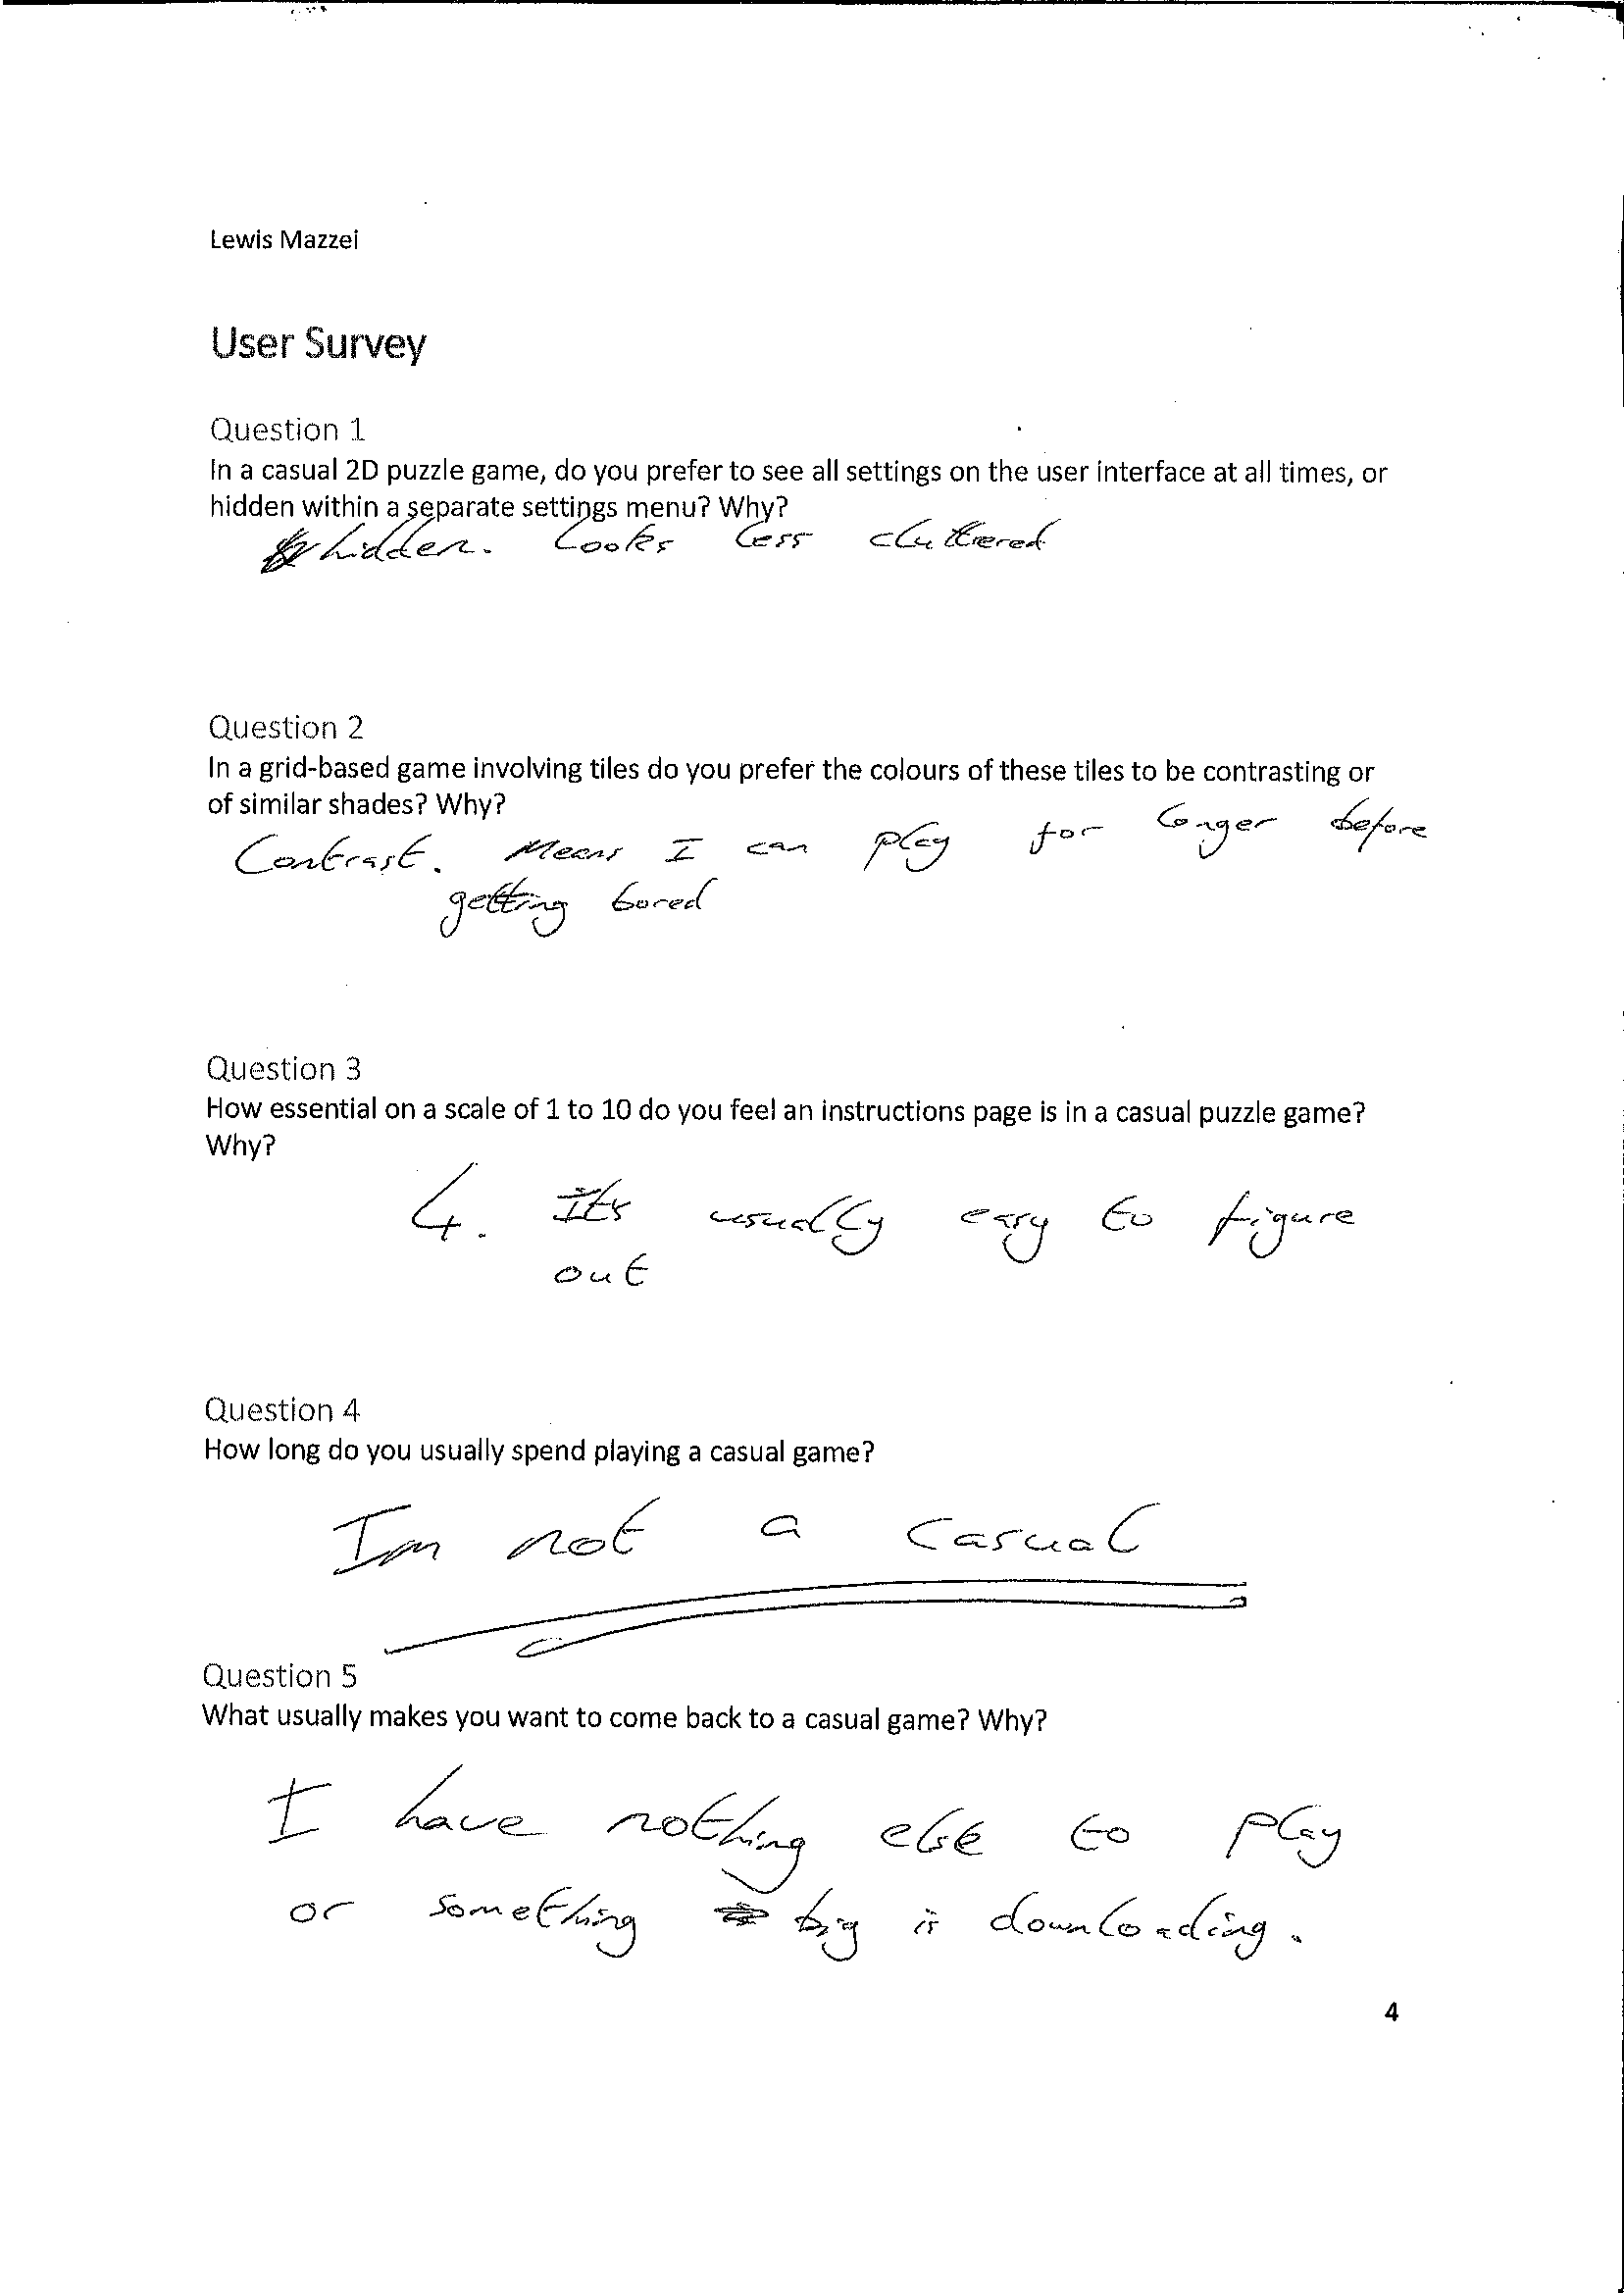 Lewis Mazzei
User Survey
Question 1
In a casual 2D puzzle game, do you prefer to see all settings on the user interface at all times, or
hidden within a separate settings menu? Why?
hidden. Looks less cluttered
Question 2
In a grid-based game involving tiles do you prefer the colours of these tiles to be contrasting or
of similar shades? Why?
Contrast. Means I can play for longer before
getting bored
Question 3
How essential on a scale of 1 to 10 do you feel an instructions page is in a casual puzzle game?
Why?
4. Its usually easy to figure
out
Question 4
How long do you usually spend playing a casual game?
Im not a casual
Question 5
What usually makes you want to come back to a casual game? Why?
I have nothing else to play
or something big is downloading.
4